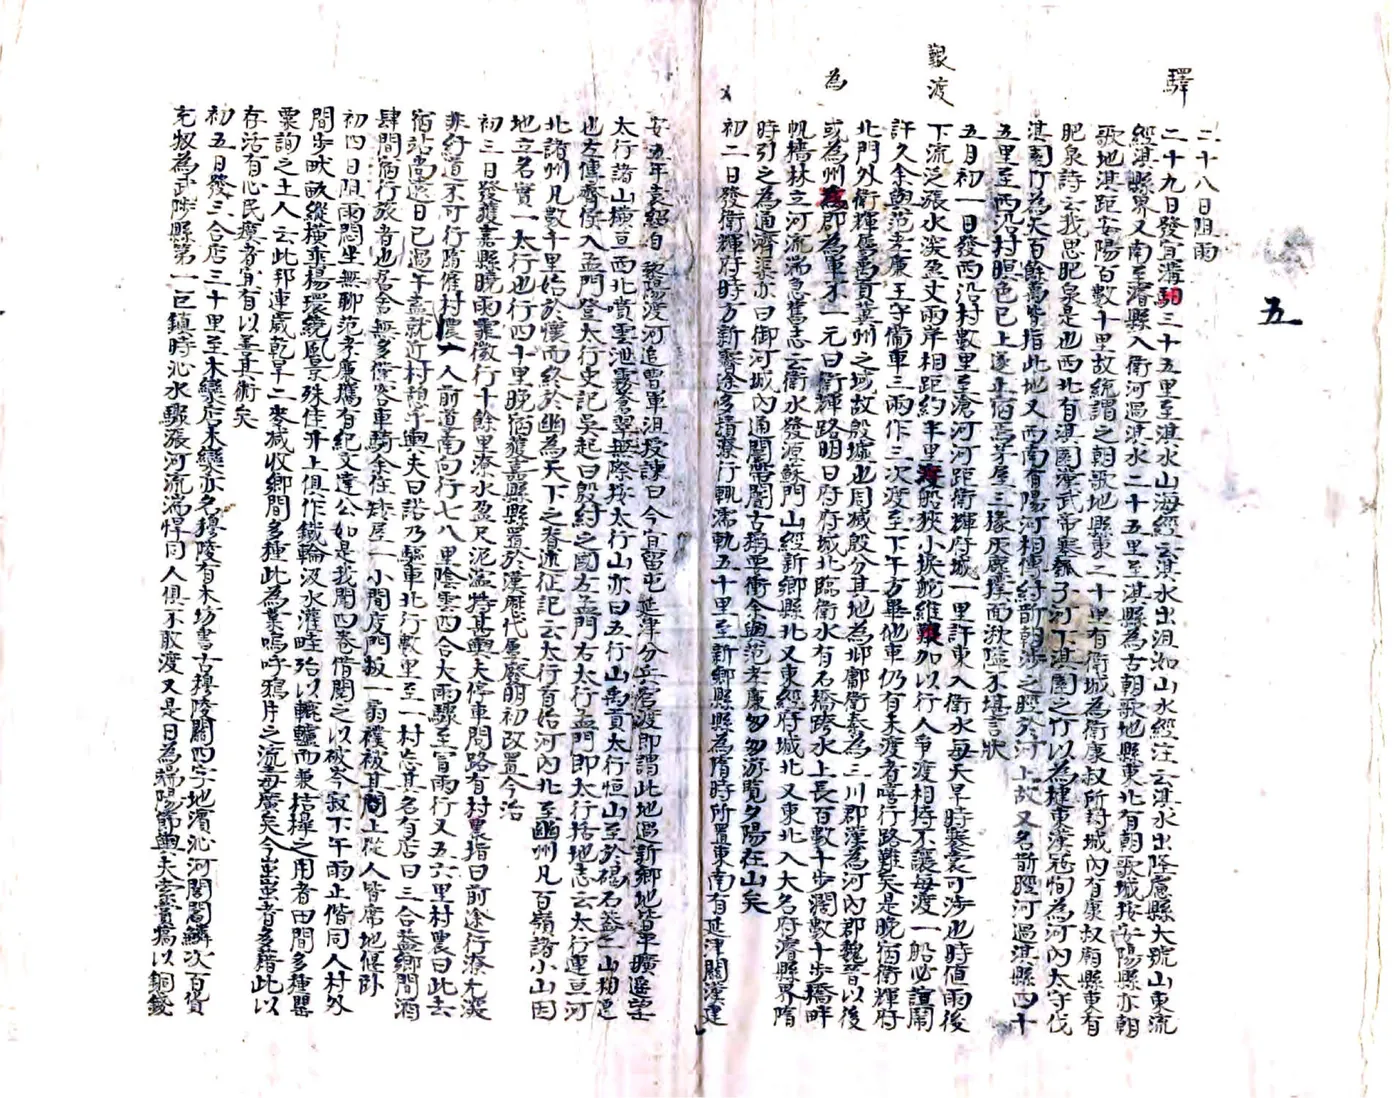 五
驛
艱渡
為
二十八日阻雨
二十九日發宜溝驛三十五里至淇水山海經云淇水出沮洳山水經注云淇水出隆慮縣大號山東流
經淇縣界又南至濬縣入衛河過淇水二十五里至淇縣為古朝歌地縣東北有朝歌城按安陽縣亦朝
歌地淇距安陽百數十里故統謂之朝歌地縣東二十里有衛城為衛康叔所封城內有康叔廟縣東有
肥泉詩云我思肥泉是也西北有淇園漢武帝塞瓠子河下淇園之竹以為揵東漢寇恂為河內太守伐
淇園竹為矢百餘萬皆指此地又西南有陽河相傳紂斮朝涉之脛於河上故又名斮脛河過淇縣四十
五里至西沿村暝色已上遂止宿焉茅屋三椽灰塵撲面湫隘不堪言狀
五月初一日發西沿村數里至滄河河距衛輝府城一里許東入衛水每天旱時褰裳可涉也時值雨後
下流泛漲水深盈丈兩岸相距約半里渡船狹小捩舵維艱加以行人爭渡相持不讓每渡一船必諠鬧
許久余與范孝廉王守備車三兩作三次渡至下午方畢他車仍有未渡者嘻行路難矣是晚宿衛輝府
北門外衛輝舊禹貢冀州之域故殷墟也周滅殷分其地為邶鄘衛秦為三川郡漢為河內郡魏晉以後
或為州為郡為軍不一元曰衛輝路明曰府府城北臨衛水有石橋跨水上長百數十步濶數十步橋畔
帆檣林立河流湍急舊志云衛水發源蘇門山經新鄉縣北又東經府城北又東北入大名府濬縣界隋
時引之為通濟渠亦曰御河城內通闤帶闠古稱要衝余與范孝廉匆匆游覽夕陽在山矣
初二日發衛輝府時方新霽途多積潦行輒濡軌五十里至新鄉縣縣為隋時所置東南有延津關漢建
安五年袁紹自黎陽渡河追曹軍沮授諫曰今宜留屯延津分兵官渡即謂此地過新鄉地皆平曠遥望
太行諸山橫亘西北噴雲泄霧蒼翠無際按太行山亦曰五行山禹貢太行恒山至於碣石蓋二山相連
也左傳齊侯入孟門登太行史記吳起曰殷紂之國左孟門右太行孟門即太行括地志云太行連亘河
北諸州凡數千里始於懷而終於幽為天下之脊述征記云太行首始河內北至幽州凡百嶺諸小山因
地立名實一太行也行四十里晚宿獲嘉縣縣置於漢歷代屢廢明初改置今治
初三日發獲嘉縣曉雨霏微行十餘里潦水盈尺泥濘特甚輿夫停車問路有村農指曰前途行潦尤深
非紆道不可行隋僱村農一人前道南向行七八里陰雲四合大雨驟至冒雨行又五六里村農曰此去
宿站尚遠日已過午盍就近村頓乎輿夫曰諾乃驅車北行數里至一村志其名有店曰三合蓋鄉間酒
肆間宿行旅者也店舍無多僅容車騎余住矮屋一小間庋門板一扇襆被其間上從人皆席地偃卧
初四日阻雨悶坐無聊范孝廉攜有紀文達公如是我聞四卷借閱之以破岑寂下午雨止偕同人村外
間步畎畝縱橫垂楊環繞風景殊佳井上俱作鐵輪汲水灌畦殆以轆轤而兼桔槔之用者田間多種罌
粟詢之土人云此邦連歲乾旱二麥減收鄉間多種此為業嗚呼鴉片之流毒廣矣今蚩蚩者多藉此以
存活有心民瘼者宜有以善其術矣
初五日發三合店三十里至木欒店木欒亦名穆陵有木坊書古穆陵關四字地濱沁河閭閻鱗次百貨
充牣為武陟縣第一巨鎮時沁水驟漲河流湍悍同人俱不敢渡又是日為端陽節輿夫索賞犒以銅錢